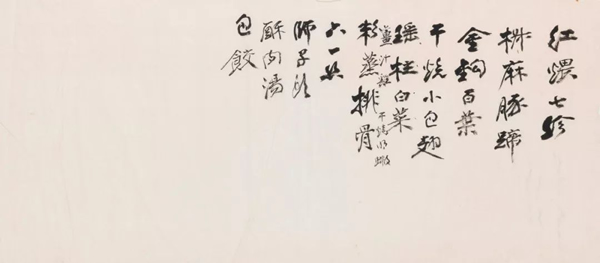 紅煨七珍
椒麻豚蹄
金鉤百葉
干燒小包翅
瑤柱白菜
薑汁
干燒明蝦
粉蒸排骨
六一絲
師子頭
酥肉湯
包餃